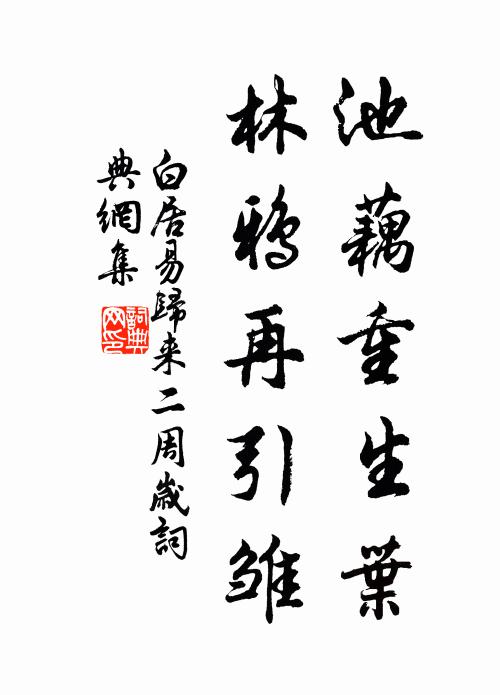 池藕重生葉
林鴉再引雛
白居易歸来二周歲詞
典網集
詞典网印